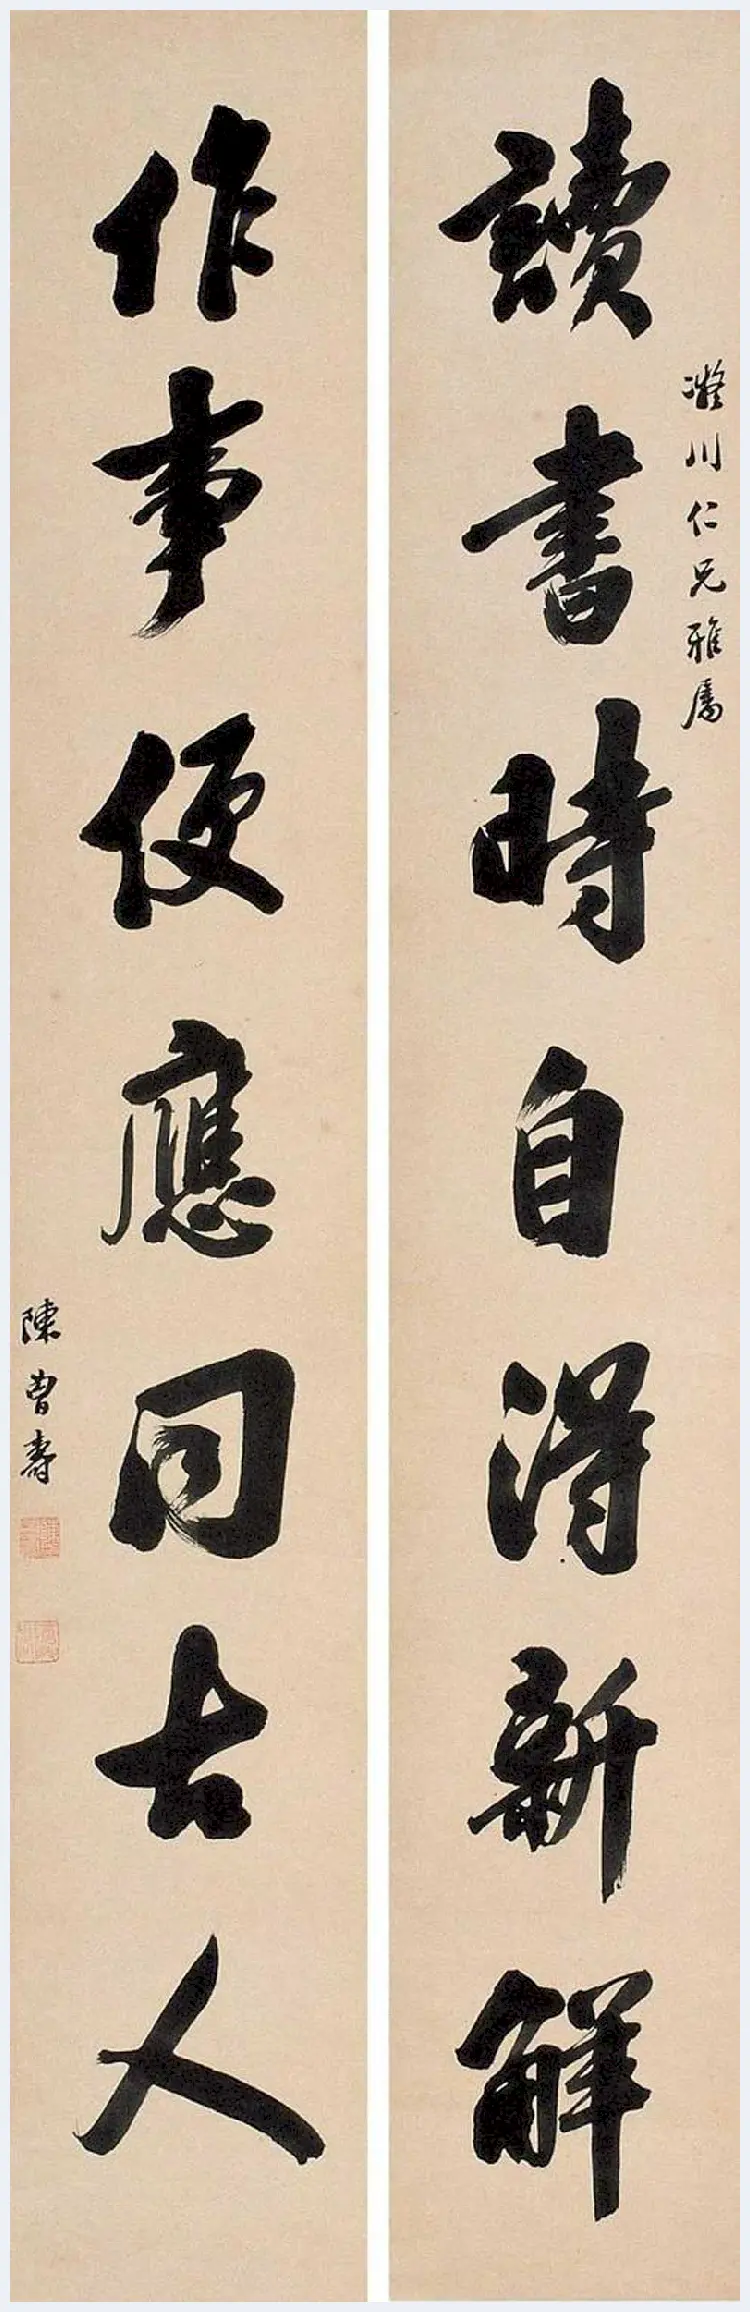 凝川仁兄雅屬
讀書時自得新解
作事便應同古人
陳曾壽